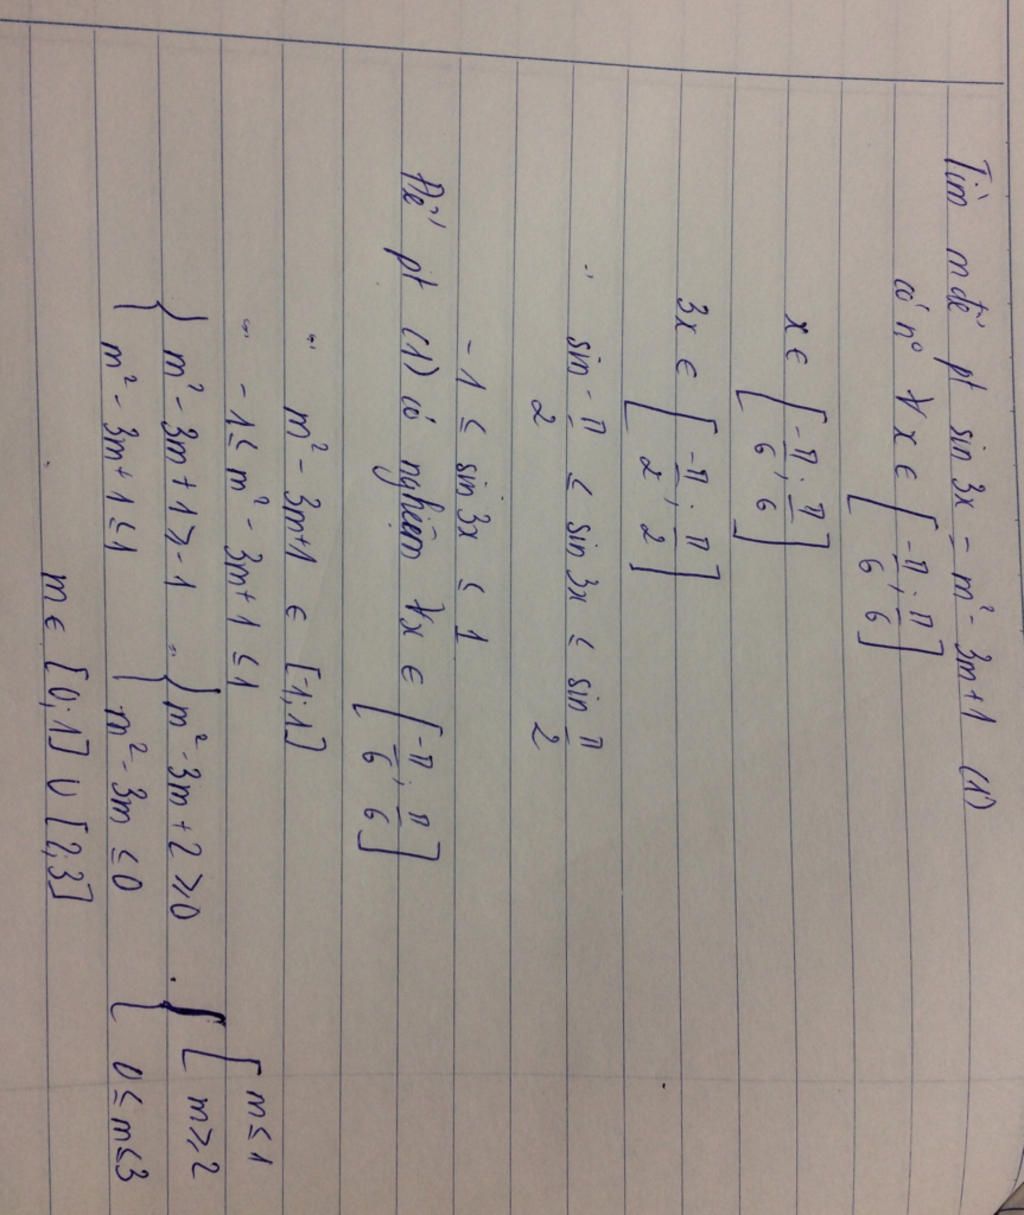 Tìm m để pt sin 3x = m² - 3m + 1 (1)
có n° ∀x ∈ [-π/6; π/6]
x ∈ [-π/6; π/6]
3x ∈ [-π/2; π/2]
sin -π/2 ≤ sin 3x ≤ sin π/2
-1 ≤ sin 3x ≤ 1
Để pt (1) có nghiệm ∀x ∈ [-π/6; π/6]
" m² - 3m + 1 ∈ [-1; 1]
" -1 ≤ m² - 3m + 1 ≤ 1
{ m² - 3m + 1 ≥ -1 " { m² - 3m + 2 ≥ 0 . { [ m ≤ 1
m ≥ 2
m² - 3m + 1 ≤ 1 m² - 3m ≤ 0 0 ≤ m ≤ 3
m ∈ [0; 1] ∪ [2; 3]